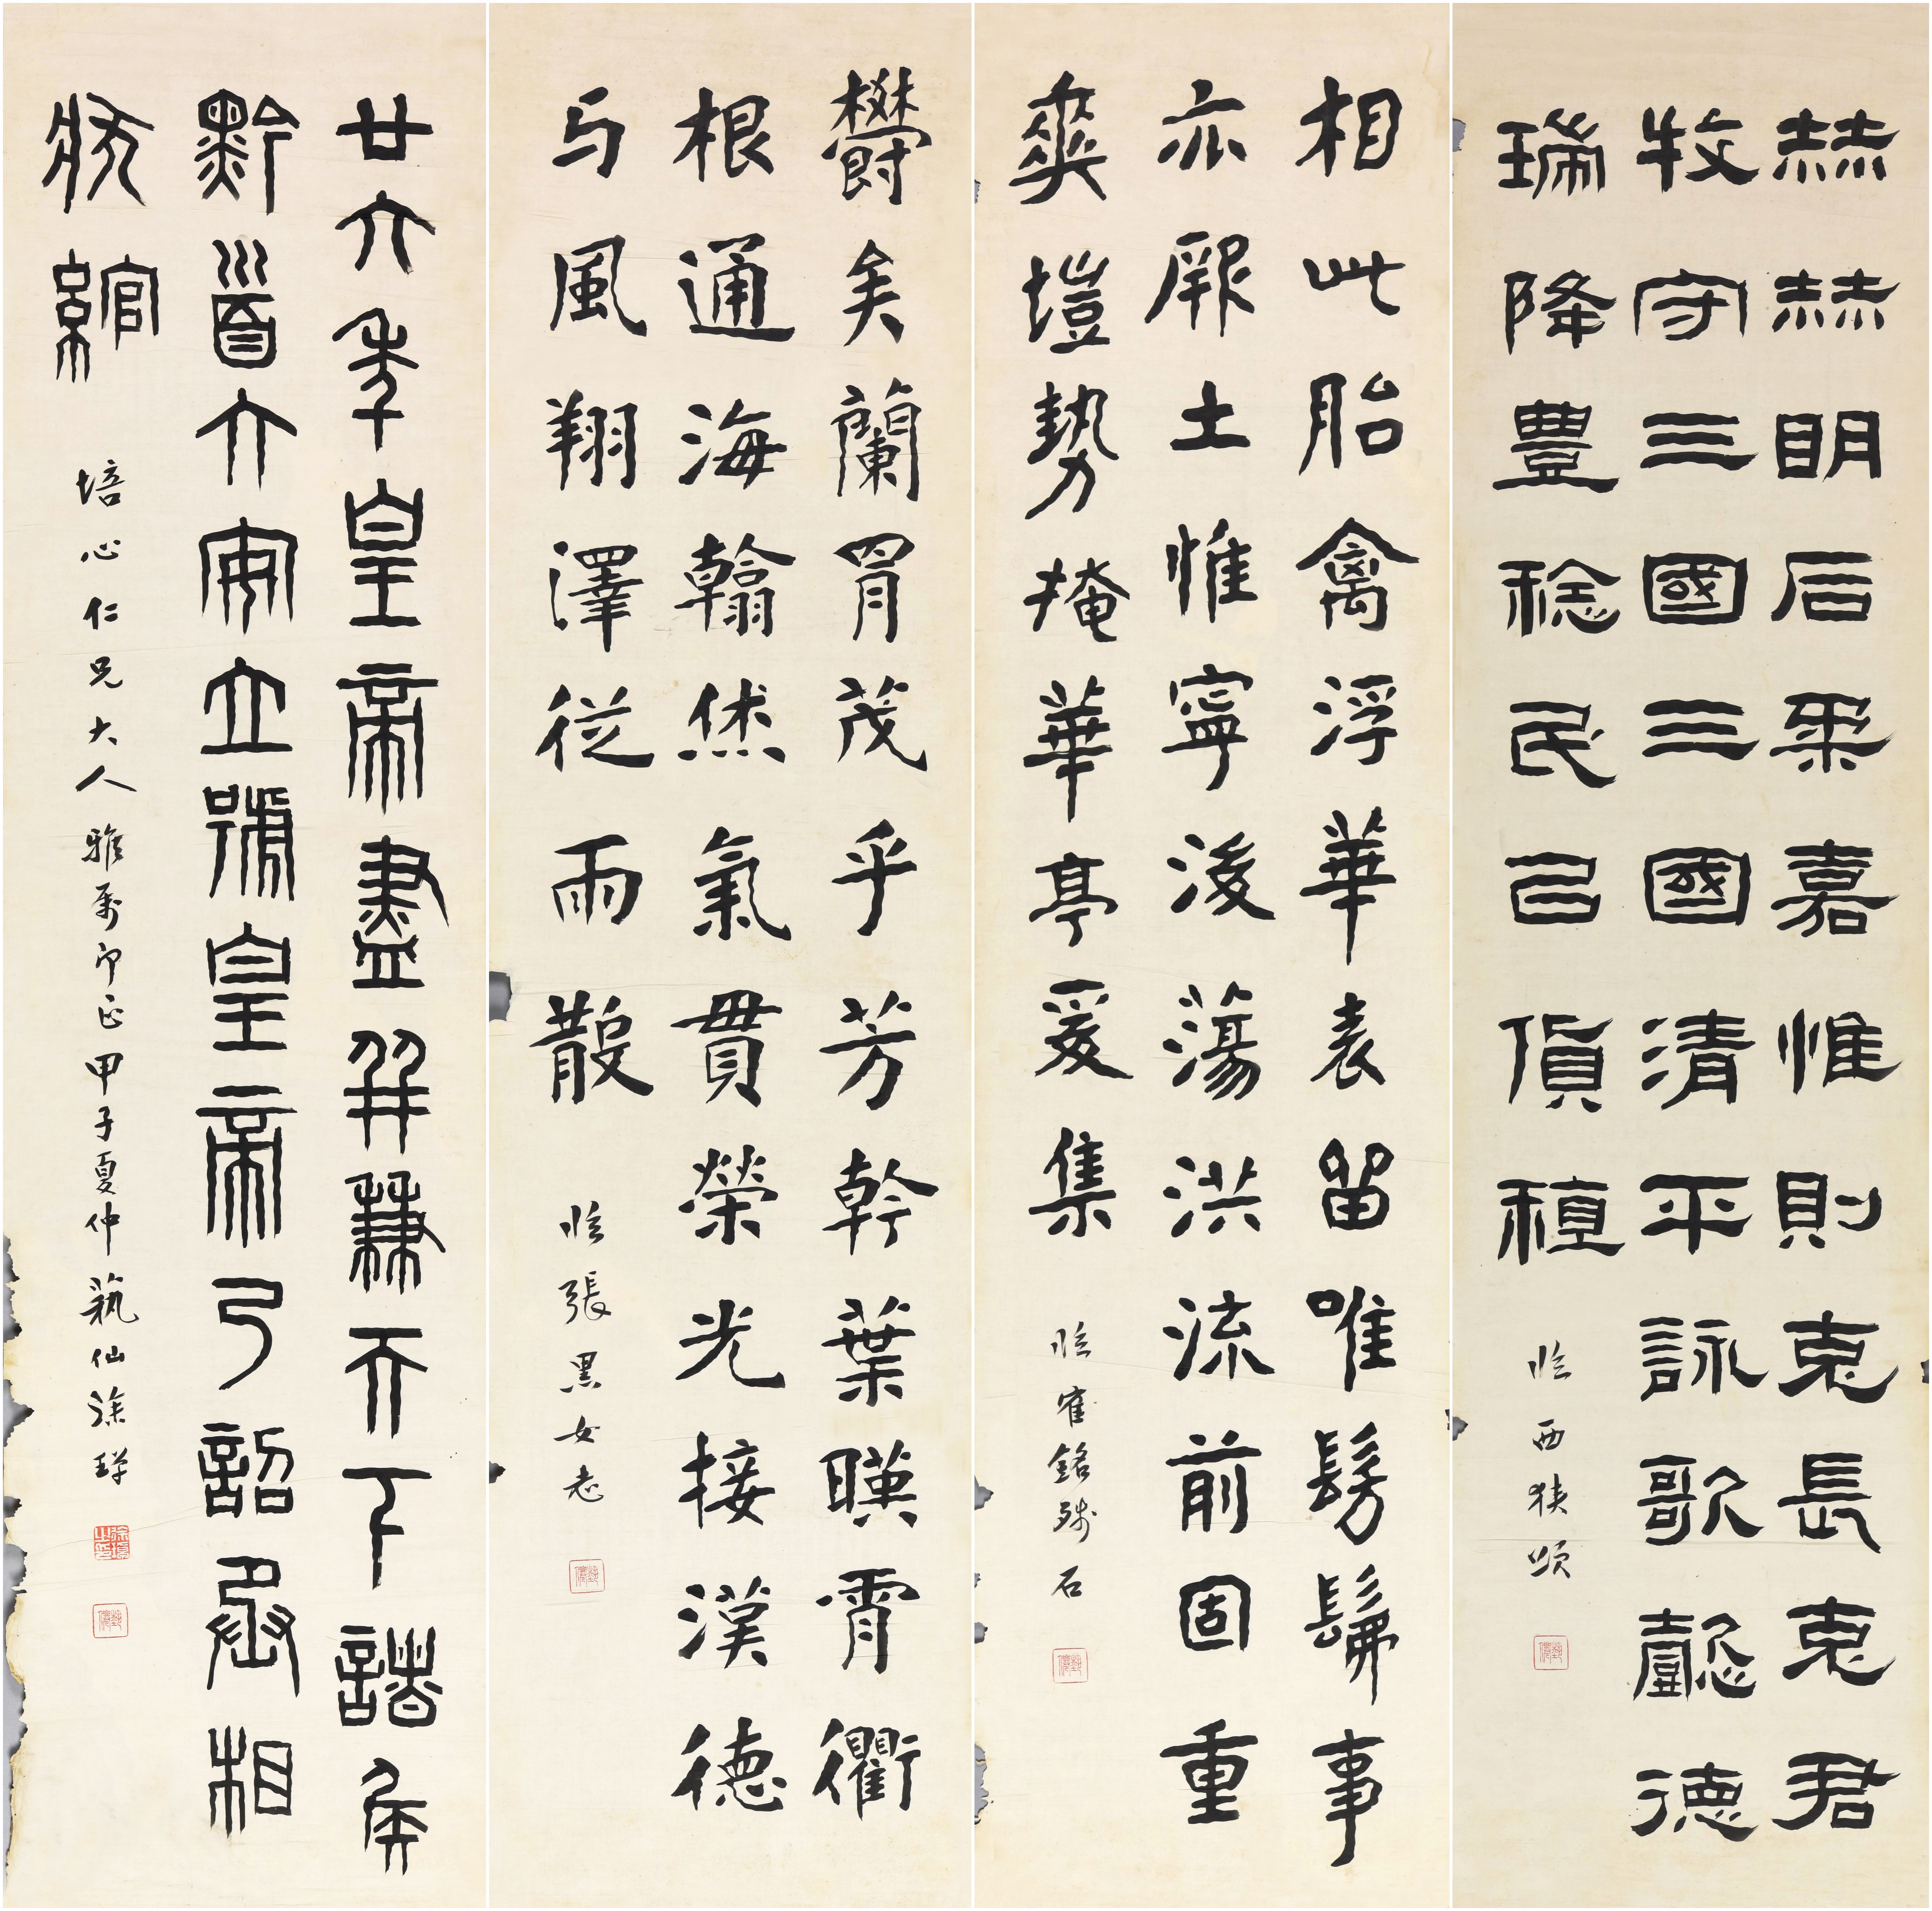 赫赫明后柔嘉惟則克長克君
牧守三國三國清平詠歌懿德
瑞降豐稔民以貨稙
臨西狹頌
相此胎禽浮華表留唯髣髴事
亦厥土惟寧後蕩洪流前固重
爽塏勢掩華亭爰集
臨寉銘殘石
鬱矣蘭胄茂乎芳幹葉暎霄衢
根通海翰烋氣貫榮光接漢德
与風翔澤從雨散
臨張黑女志
廿六年皇帝盡并兼天下諸侯
黔首大安立號皇帝乃詔丞相
狀綰
培心仁兄大人雅屬印正甲子夏仲蓺仙涂